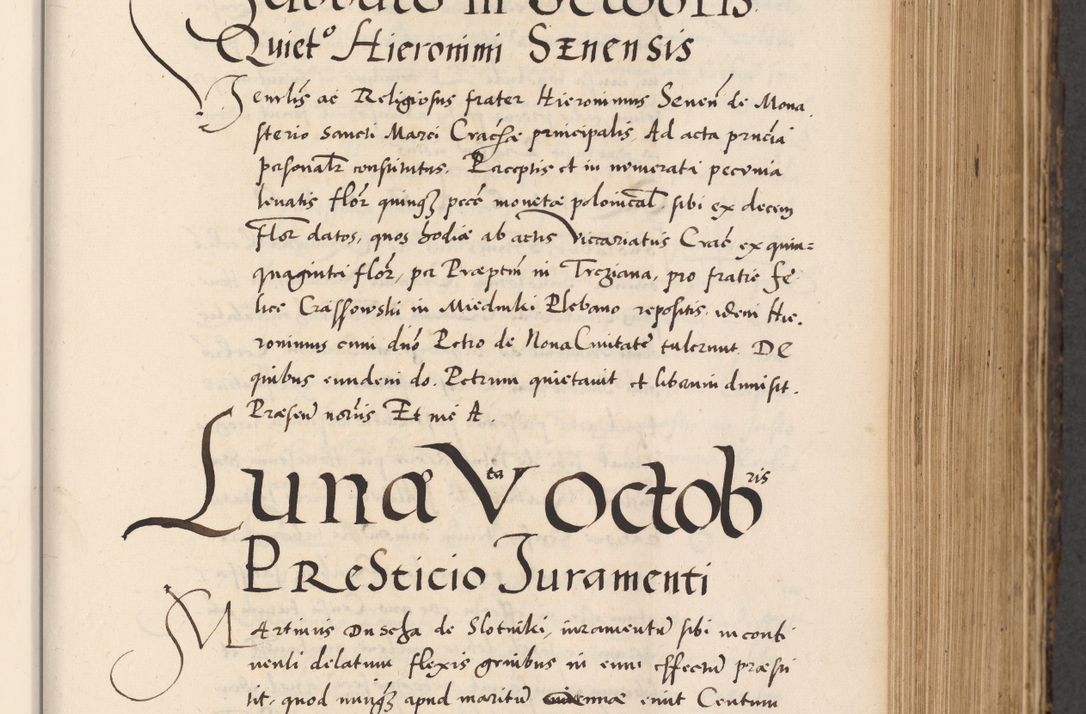 Sabbato III Octobris
Quiet⁰ Hieronimi Senensis
ac Religiosus frater Hieronimus Senen̄ de Mona
sterio Sancti Marci Crac principalis Ad acta pn̄cia
personalr̄ constitutus. Receptis et in numerata pecunia
levatis flor̄ quinqꝫ pecc̄ monetæ polonical̄ sibi ex decem
Flor datos, quos hodie ab actis Viccariatus Crac̄ ex quin=
quaginta flor̄, per Præptm̄ in Trczianа, pro fratre Fe
lice Crassowski in Miedniki Plebano repositis idem Hie.
ronimus cum dn̄o Petro de Nova Civitate tulerunt. De
quibus eundem do. Petrum quietavit et liberum dimisit.
Præsen̄ nor̄is Et me A.
Lunæ Vta Octobris
Presticio Juramenti
Martinus Duscha de Slotniki, iuramentū sibi in conti
nenti delatum flexis genibus in eum effectū præsti
tit, quod nunqꝫ apud maritū emit Centum